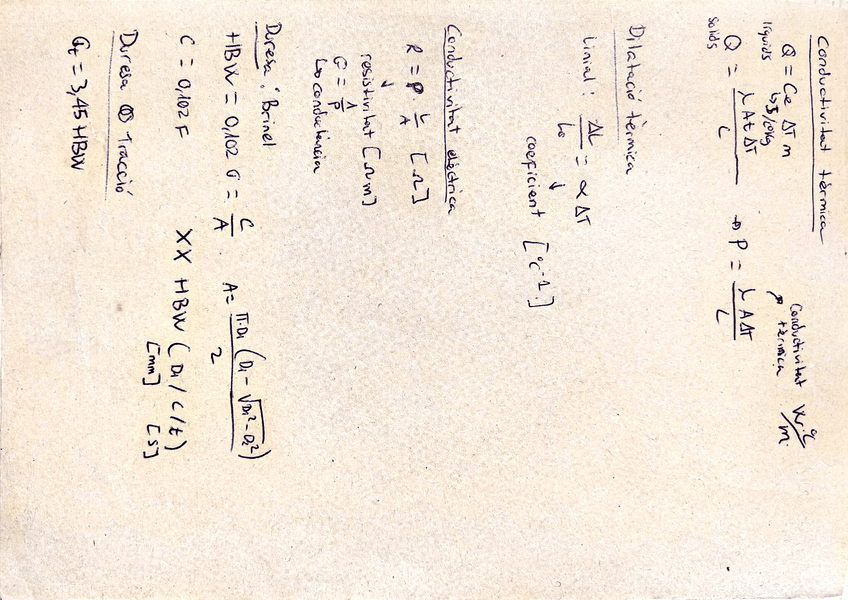 Conductivitat tèrmica
Q = Ce ΔT m
líquids
Q = λ A t ΔT / L → P = λ A ΔT / L
sòlids
Conductivitat
tèrmica
Dilatació tèrmica
Linial: ΔL / Lo = α ΔT
coeficient [°C⁻¹]
Conductivitat elèctrica
R = ρ · L / A [Ω]
resistivitat [Ω m]
σ = 1 / ρ
↳ conductància
Duresa: Brinel
HBW = 0,102 σ = C / A A = π·D₁ (D₁ - √D₁² - D₂²) / 2
C = 0,102 F XX HBW (D₁ / C / t)
[mm] [s]
Duresa Tracció
σt = 3,45 HBW